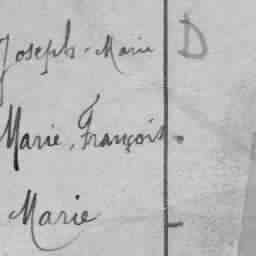 Joseph-Marie D
Marie, François.
Marie